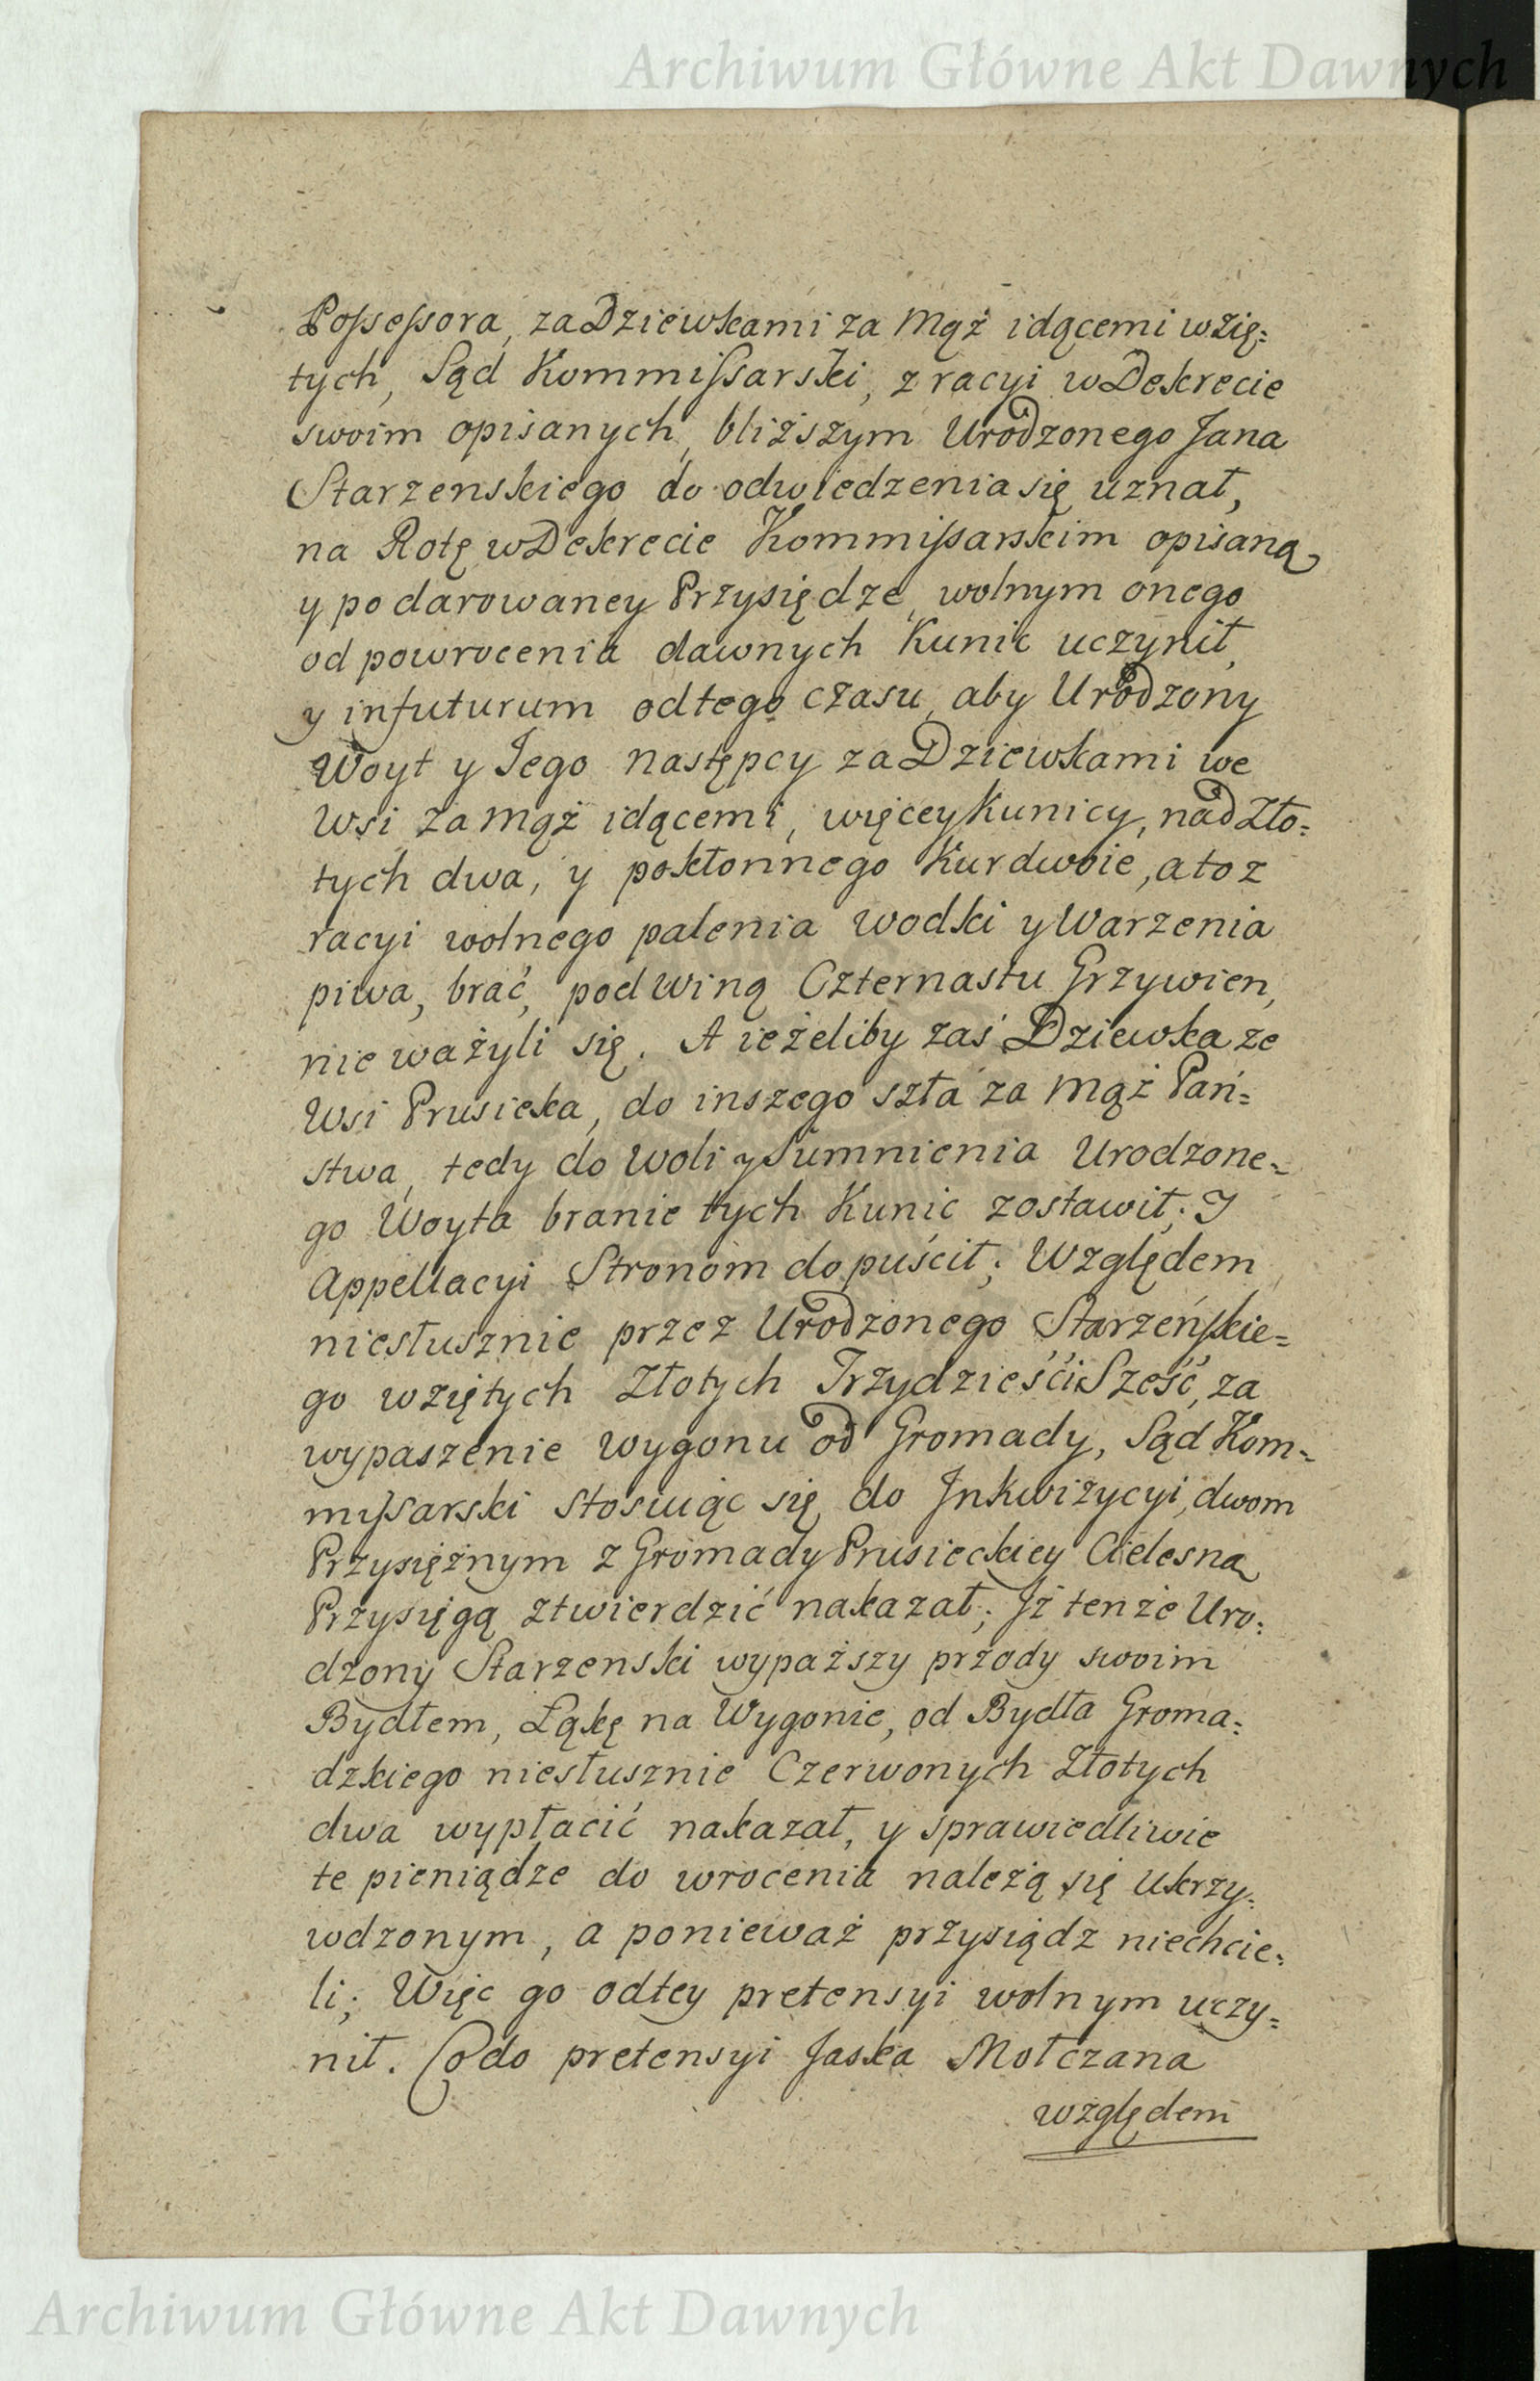 Archiwum Główne Akt Dawnych
Possessora, za Dziewkami za Mąż idącemi wzię=
tych, Sąd Kommissarski, z racyi w Dekrecie
swoim opisanych, bliższym Urodzonego Jana
Starzenskiego do odwiedzenia się uznał,
na Rotę w Dekrecie Kommissarskim opisaną
y po darowaney Przysiędze, wolnym onego
od powrocenia dawnych Kunic uczynił,
y infuturum od tego czasu, aby Urodzony
Woyt y Jego następcy za Dziewkami we
Wsi za Mąż idącemi, więcey Kunicy, nad Zło=
tych dwa, y pokłonnego Kur dwoie, a to z
racyi wolnego palenia wodki y Warzenia
piwa, brać, pod Winą Czternastu Grzywien,
nie ważyli się. A ieżeliby zaś Dziewka ze
Wsi Prusieka, do inszego szła za Mąż Pań=
stwa, tedy do Woli y Sumnienia Urodzone=
go Woyta branie tych Kunic zostawił; I
Appellacyi Stronom dopuścił; Względem
niesłusznie przez Urodzonego Starzeńskie=
go wziętych Złotych Trzydzieści Sześć, za
wypaszenie wygonu od Gromady, Sąd Kom=
missarski stosuiąc się do Inkwizycyi, dwom
Przysiężnym z Gromady Prusieckiey Cielesną
Przysięgą ztwierdzić nakazał; Iż tenże Uro=
dzony Starzenski wypaższy przody swoim
Bydłem, Łąkę na Wygonie, od Bydła Groma=
dzkiego niesłusznie Czerwonych Złotych
dwa wypłacić nakazał, y sprawiedliwie
te pieniądze do wrocenia należą się Ukrzy=
wdzonym, a ponieważ przysiądz niechcie=
li; Więc go od tey pretensyi wolnym uczy=
nił. Co do pretensyi Jaska Mołczana
względem
Archiwum Główne Akt Dawnych